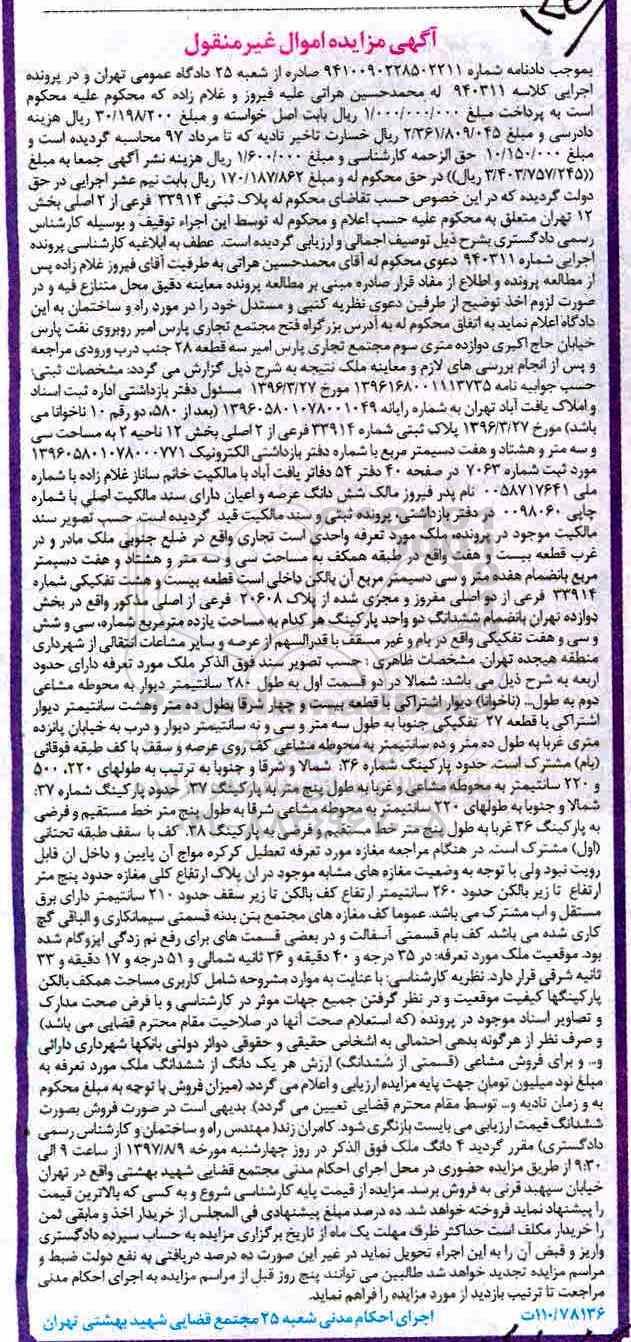 آگهی مزایده اموال غیرمنقول
بموجب دادنامه شماره ۹۴۱۰۰۹۰۲۲۸۵۰۲۲۱۱ صادره از شعبه ۲۵ دادگاه عمومی تهران و در پرونده
اجرایی کلاسه ۹۴۰۳۱۱ له محمدحسین هراتی علیه فیروز و غلام زاده که محکوم علیه محکوم
است به پرداخت مبلغ ۱/۰۰۰/۰۰۰/۰۰۰ ریال بابت اصل خواسته و مبلغ ۳۰/۱۹۸/۲۰۰ ریال هزینه
دادرسی و مبلغ ۲/۳۶۱/۸۰۹/۰۴۵ ریال خسارت تاخیر تادیه که تا مرداد ۹۷ محاسبه گردیده است و
مبلغ ۱۰/۱۵۰/۰۰۰ حق الزحمه کارشناسی و مبلغ ۱/۶۰۰/۰۰۰ ریال هزینه نشر آگهی جمعا به مبلغ
((۳/۴۰۳/۷۵۷/۲۴۵ ریال)) در حق محکوم له و مبلغ ۱۷۰/۱۸۷/۸۶۲ ریال بابت نیم عشر اجرایی در حق
دولت گردیده که در این خصوص حسب تقاضای محکوم له پلاک ثبتی ۳۳۹۱۴ فرعی از ۲ اصلی بخش
۱۲ تهران متعلق به محکوم علیه حسب اعلام و محکوم له توسط این اجراء توقیف و بوسیله کارشناس
رسمی دادگستری بشرح ذیل توصیف اجمالی و ارزیابی گردیده است. عطف به ابلاغیه کارشناسی پرونده
اجرایی شماره ۹۴۰۳۱۱ دعوی محکوم له آقای محمدحسین هراتی به طرفیت آقای فیروز غلام زاده پس
از مطالعه پرونده و اطلاع از مفاد قرار صادره مبنی بر مطالعه پرونده معاینه دقیق محل متنازع فیه و در
صورت لزوم اخذ توضیح از طرفین دعوی نظریه کتبی و مستدل خود را در مورد راه و ساختمان به این
دادگاه اعلام نماید به اتفاق محکوم له به آدرس بزرگراه فتح مجتمع تجاری پارس امیر روبروی نفت پارس
خیابان حاج اکبری دوازده متری سوم مجتمع تجاری پارس امیر سه قطعه ۲۸ جنب درب ورودی مراجعه
و پس از انجام بررسی های لازم و معاینه ملک نتیجه به شرح ذیل گزارش می گردد: مشخصات ثبتی:
حسب جوابیه نامه ۱۳۹۶۱۶۸۰۰۱۱۱۳۷۳۵ مورخ ۱۳۹۶/۳/۲۷ مسئول دفتر بازداشتی اداره ثبت اسناد
و املاک یافت آباد تهران به شماره رایانه ۱۳۹۶۰۵۸۰۱۰۷۸۰۰۱۰۴۹ (بعد از ۵۸۰، دو رقم ۱۰ ناخوانا می
باشد) مورخ ۱۳۹۶/۳/۲۷ پلاک ثبتی شماره ۳۳۹۱۴ فرعی از ۲ اصلی بخش ۱۲ ناحیه ۲ به مساحت سی
و سه متر و هشتاد و هفت دسیمتر مربع با شماره دفتر بازداشتی الکترونیک ۱۳۹۶۰۵۸۰۱۰۷۸۰۰۰۷۷۱
مورد ثبت شماره ۷۰۶۳ در صفحه ۴۰ دفتر ۵۴ دفاتر یافت آباد با مالکیت خانم ساناز غلام زاده با شماره
ملی ۰۰۵۸۷۱۷۶۴۱ نام پدر فیروز مالک شش دانگ عرصه و اعیان دارای سند مالکیت اصلی با شماره
چاپی ۰۰۹۸۰۶۰ در دفتر بازداشتی، پرونده ثبتی و سند مالکیت قید گردیده است. حسب تصویر سند
مالکیت موجود در پرونده، ملک مورد تعرفه واحدی است تجاری واقع در ضلع جنوبی ملک مادر و در
غرب قطعه بیست و هفت واقع در طبقه همکف به مساحت سی و سه متر و هشتاد و هفت دسیمتر
مربع بانضمام هفده متر و سی دسیمتر مربع آن بالکن داخلی است قطعه بیست و هشت تفکیکی شماره
۳۳۹۱۴ فرعی از دو اصلی مفروز و مجزی شده از پلاک ۲۰۶۰۸ فرعی از اصلی مذکور واقع در بخش
دوازده تهران بانضمام ششدانگ دو واحد پارکینگ هر کدام به مساحت یازده مترمربع شماره، سی و شش
و سی و هفت تفکیکی واقع در بام و غیر مسقف با قدرالسهم از عرصه و سایر مشاعات انتقالی از شهرداری
منطقه هیجده تهران. مشخصات ظاهری : حسب تصویر سند فوق الذکر ملک مورد تعرفه دارای حدود
اربعه به شرح ذیل می باشد: شمالا در دو قسمت اول به طول ۲۸۰ سانتیمتر دیوار به محوطه مشاعی
دوم به طول... (ناخوانا) دیوار اشتراکی با قطعه بیست و چهار شرقا بطول ده متر وهشت سانتیمتر دیوار
اشتراکی با قطعه ۲۷ تفکیکی جنوبا به طول سه متر و سی و نه سانتیمتر دیوار و درب به خیابان پانزده
متری غربا به طول ده متر و ده سانتیمتر به محوطه مشاعی کف روی عرصه و سقف با کف طبقه فوقانی
(بام) مشترک است. حدود پارکینگ شماره ۳۶: شمالا و شرقا و جنوبا به ترتیب به طولهای ۲۲۰، ۵۰۰
و ۲۲۰ سانتیمتر به محوطه مشاعی و غربا به طول پنج متر به پارکینگ ۳۷. حدود پارکینگ شماره ۳۷:
شمالا و جنوبا به طولهای ۲۲۰ سانتیمتر به محوطه مشاعی شرقا به طول پنج متر خط مستقیم و فرضی
به پارکینگ ۳۶ غربا به طول پنج متر خط مستقیم و فرضی به پارکینگ ۳۸. کف با سقف طبقه تحتانی
(اول) مشترک است. در هنگام مراجعه مغازه مورد تعرفه تعطیل کرکره مواج آن پایین و داخل ان قابل
رویت نبود ولی با توجه به وضعیت مغازه های مشابه موجود در ان پلاک ارتفاع کلی مغازه حدود پنج متر
ارتفاع تا زیر بالکن حدود ۲۶۰ سانتیمتر ارتفاع کف بالکن تا زیر سقف حدود ۲۱۰ سانتیمتر دارای برق
مستقل و اب مشترک می باشد. عموما کف مغازه های مجتمع بتن بدنه قسمتی سیمانکاری و الباقی گچ
کاری شده می باشد. کف بام قسمتی آسفالت و در بعضی قسمت های برای رفع نم زدگی ایزوگام شده
بود. موقعیت ملک مورد تعرفه: در ۳۵ درجه و ۴۰ دقیقه و ۳۶ ثانیه شمالی و ۵۱ درجه و ۱۷ دقیقه و ۳۳
ثانیه شرقی قرار دارد. نظریه کارشناسی: با عنایت به موارد مشروحه شامل کاربری مساحت همکف بالکن
پارکینگها کیفیت موقعیت و در نظر گرفتن جمیع جهات موثر در کارشناسی و با فرض صحت مدارک
و تصاویر اسناد موجود در پرونده (که استعلام صحت آنها در صلاحیت مقام محترم قضایی می باشد)
و صرف نظر از هرگونه بدهی احتمالی به اشخاص حقیقی و حقوقی دوائر دولتی بانکها شهرداری دارائی
و... و برای فروش مشاعی (قسمتی از ششدانگ) ارزش هر یک دانگ از ششدانگ ملک مورد تعرفه به
مبلغ نود میلیون تومان جهت پایه مزایده ارزیابی و اعلام می گردد. (میزان فروش با توجه به مبلغ محکوم
به و زمان تادیه و... توسط مقام محترم قضایی تعیین می گردد). بدیهی است در صورت فروش بصورت
ششدانگ قیمت ارزیابی می بایست بازنگری شود. کامران زند( مهندس راه و ساختمان و کارشناس رسمی
دادگستری) مقرر گردید ۴ دانگ ملک فوق الذکر در روز چهارشنبه مورخه ۱۳۹۷/۸/۹ از ساعت ۹ الی
۹:۳۰ از طریق مزایده حضوری در محل اجرای احکام مدنی مجتمع قضایی شهید بهشتی واقع در تهران
خیابان سپهبد قرنی به فروش برسد. مزایده از قیمت پایه کارشناسی شروع و به کسی که بالاترین قیمت
را پیشنهاد نماید فروخته خواهد شد. ده درصد مبلغ پیشنهادی فی المجلس از خریدار اخذ و مابقی ثمن
را خریدار مکلف است حداکثر ظرف مهلت یک ماه از تاریخ برگزاری مزایده به حساب سپرده دادگستری
واریز و قبض آن را به این اجراء تحویل نماید در غیر این صورت ده درصد دریافتی به نفع دولت ضبط و
مراسم مزایده تجدید خواهد شد. طالبین می توانند پنج روز قبل از مراسم مزایده به اجرای احکام مدنی
مراجعت تا ترتیب بازدید از مورد مزایده را فراهم نماید.
۱۱۰/۷۸۱۳۶ت اجرای احکام مدنی شعبه ۲۵ مجتمع قضایی شهید بهشتی تهران